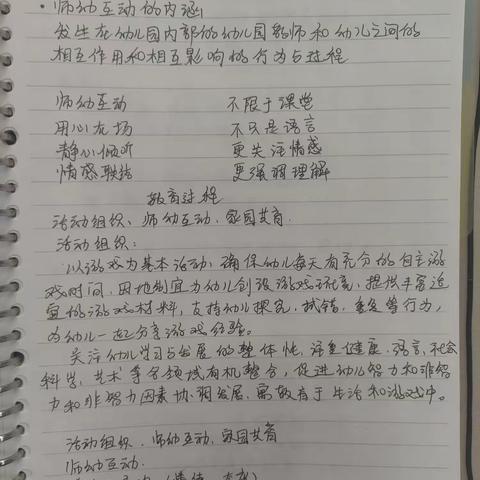 • 师幼互动的内涵
发生在幼儿园内部的幼儿园教师和幼儿之间的
相互作用和相互影响的行为与过程
师幼互动 不限于课堂
用心在场 不只是语言
静心倾听 更关注情感
情感联结 更强调理解
教育过程
活动组织、师幼互动、家园共育
活动组织：
以游戏为基本活动，确保幼儿每天有充分的自主游
戏时间，因地制宜为幼儿创设游戏环境，提供丰富适
宜的游戏材料，支持幼儿探究、试错、重复等行为，
与幼儿一起分享游戏经验。
关注幼儿学习与发展的整体性，注重健康、语言、社会
科学、艺术等各领域有机整合，促进幼儿智力和非智
力和非智力因素协调发展，寓教育于生活和游戏中。
活动组织、师幼互动、家园共育
师幼互动.